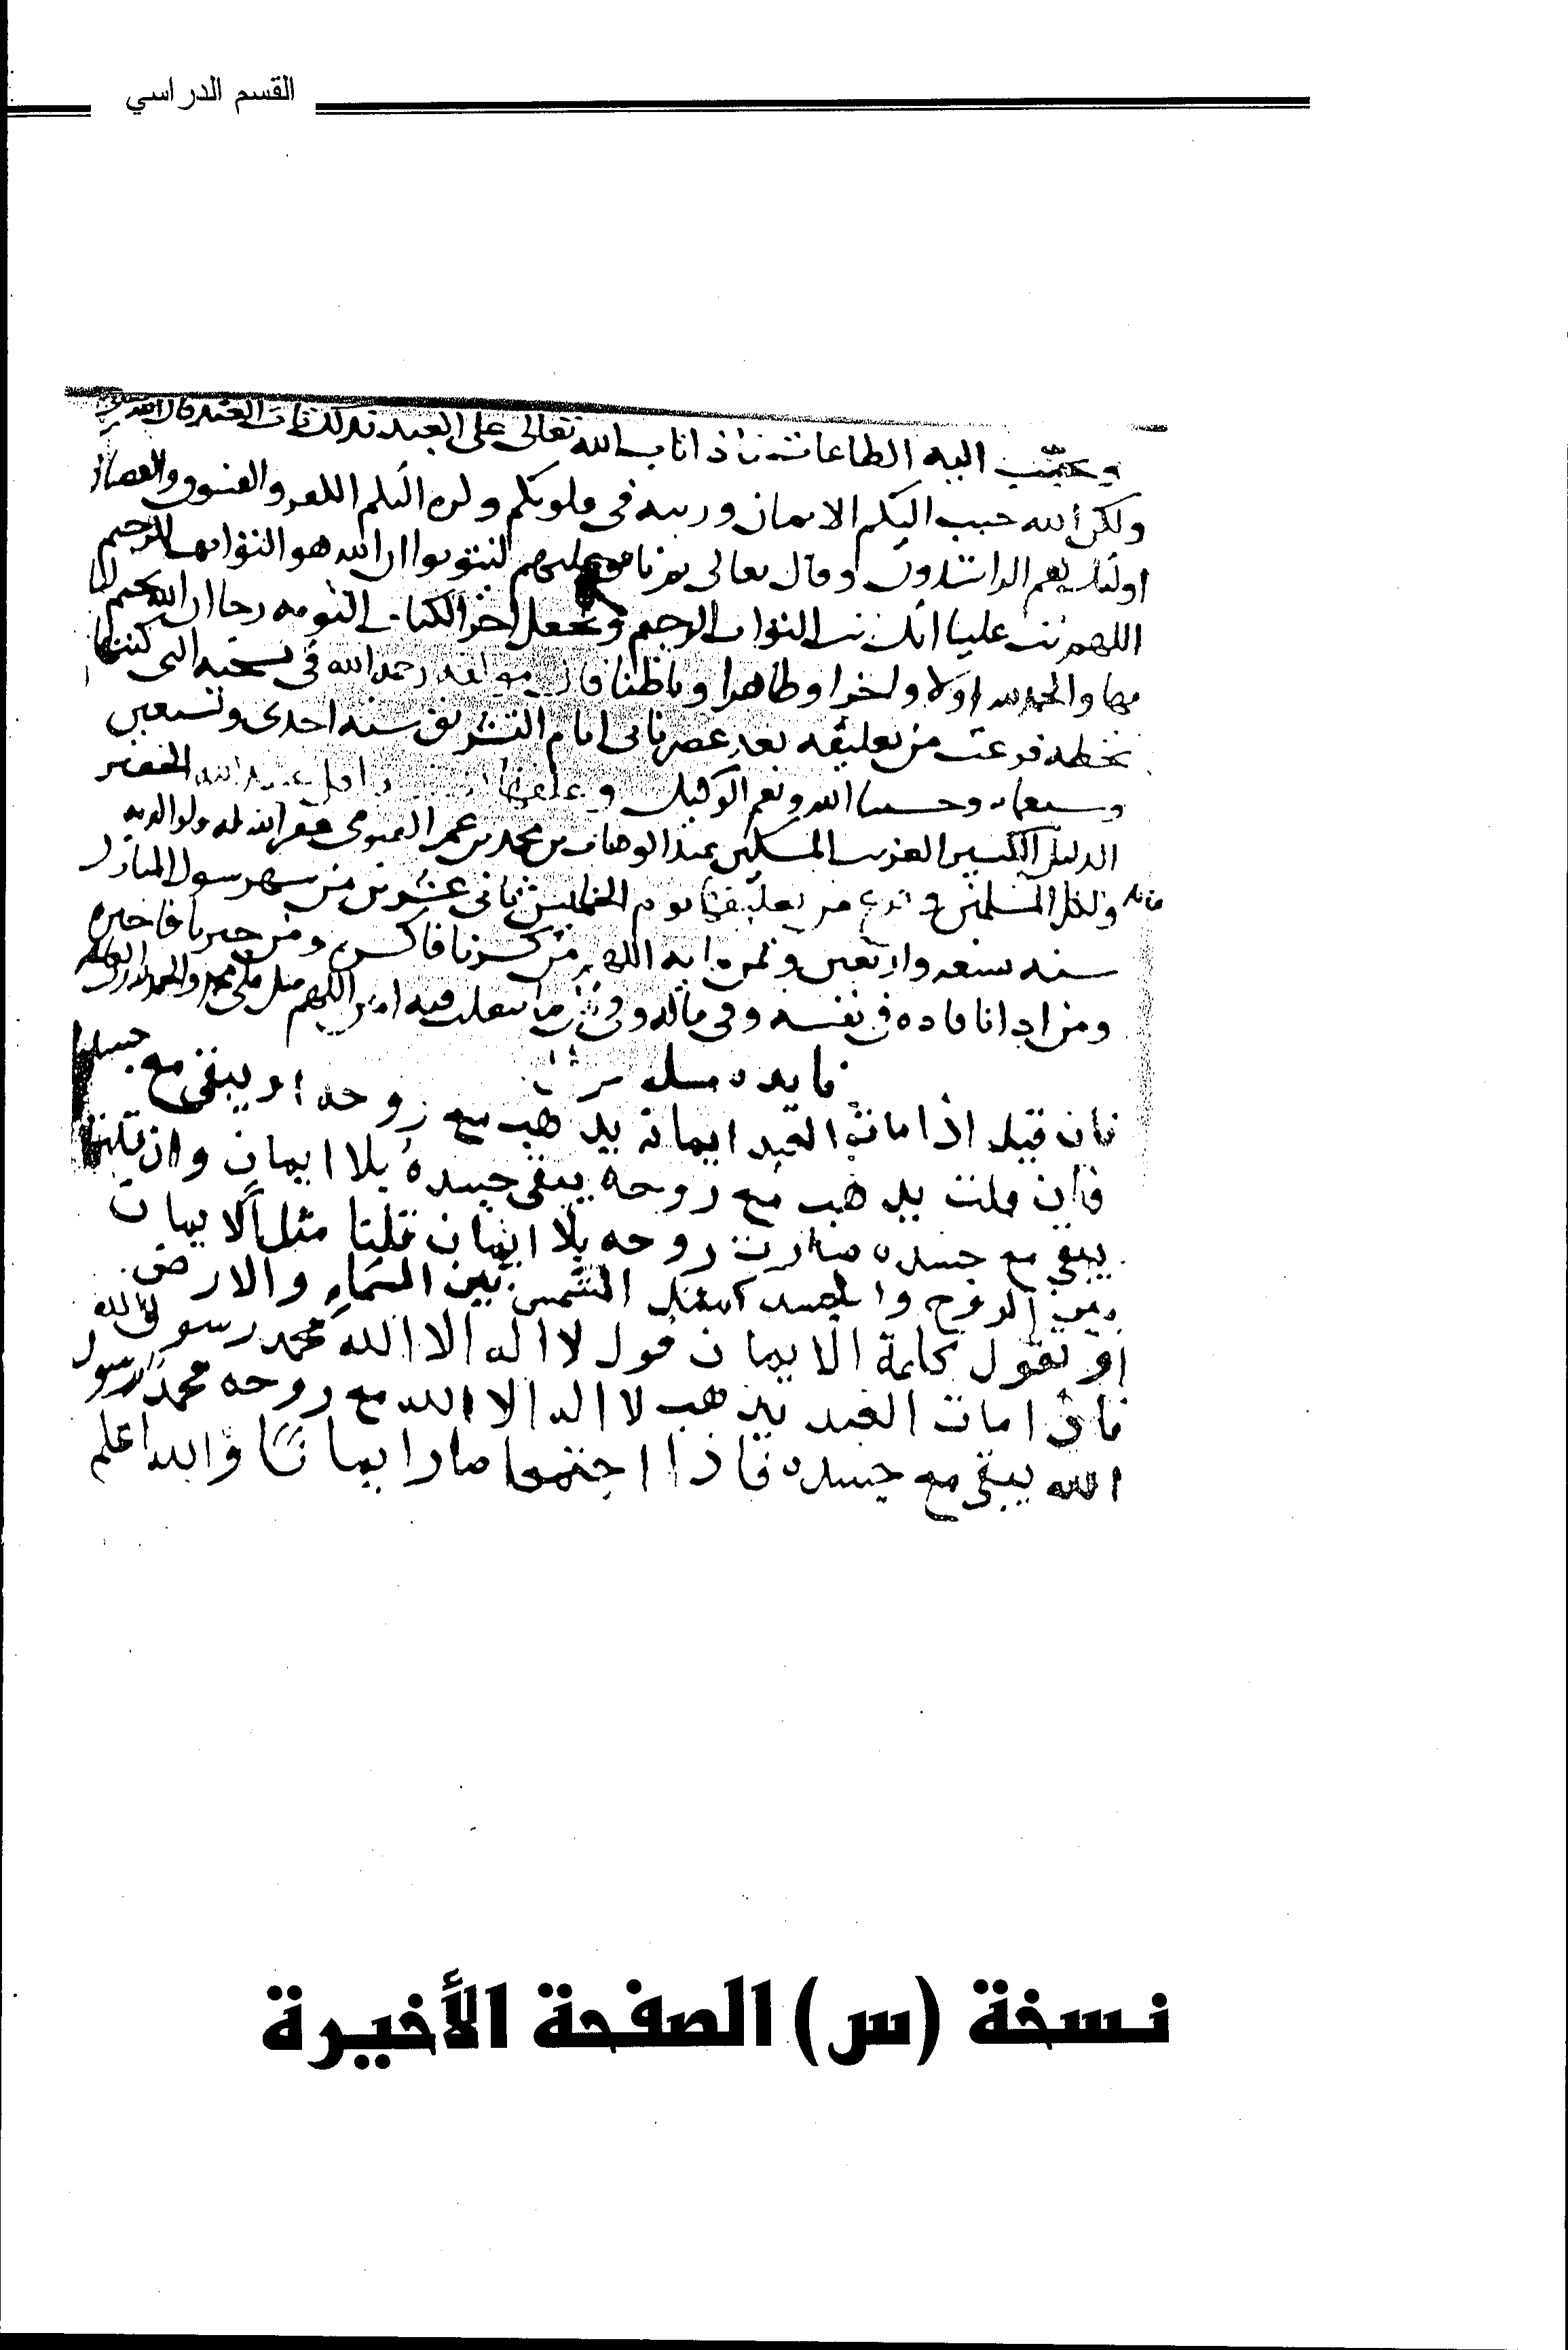 القسم الدراسي
وحبب اليه الطاعات فاذا تاب الله تعالى على العبد تاب العبد قال الله تعالى
ولكن الله حبب اليكم الايمان وزينه في قلوبكم وكره اليكم الكفر والفسوق والعصيان
اولئك هم الراشدون وقال تعالى ثم تاب عليهم ليتوبوا ان الله هو التواب الرحيم
اللهم تب علينا انك انت التواب الرحيم ونجعل اخر الكتاب التوبه رجا ان الله يختم لنا
بها والحمد لله اولا واخرا وظاهرا وباطنا قال مولفه رحمه الله في نسخته التي كتبها
بخطه فرغت من تعليقه بعد عصر ثاني ايام التشريق سنه احدى وتسعين
وسبعمايه وحسبنا الله ونعم الوكيل وعلقها عبيد الله الفقير
الذليل الغريب المسكين عبد الوهاب بن محمد بن عمر الفيومي غفر الله له ولوالديه
ولكل المسلمين وفرغ من تعليقها يوم الخميس ثاني عشرين من شهر شوال المبارك
سنه سبعه واربعين وثمنمايه اللهم من كسرنا فاكسره ومن جبرنا فاجبره
ومن اذانا فاذه في نفسه وفي ماله وفي اللهم صل على محمد والحمد لله رب العالمين
فايده مسله
فان قيل اذا مات العبد ايمانه يذهب مع روحه او يبقى مع جسده
فان قلت يذهب مع روحه يبقى جسده بلا ايمان وان قلت
يبقى مع جسده صارت روحه بلا ايمان قلنا مثل الايمان
بين الروح والجسد كمثل الشمس بين السماء والارض
او نقول كلمة الايمان قول لا اله الا الله محمد رسول الله
فاذا مات العبد يذهب لا اله الا الله مع روحه محمد رسول
الله يبقى مع جسده فاذا اجتمعا صارا ايمانا والله اعلم
نسخة (س) الصفحة الأخيرة